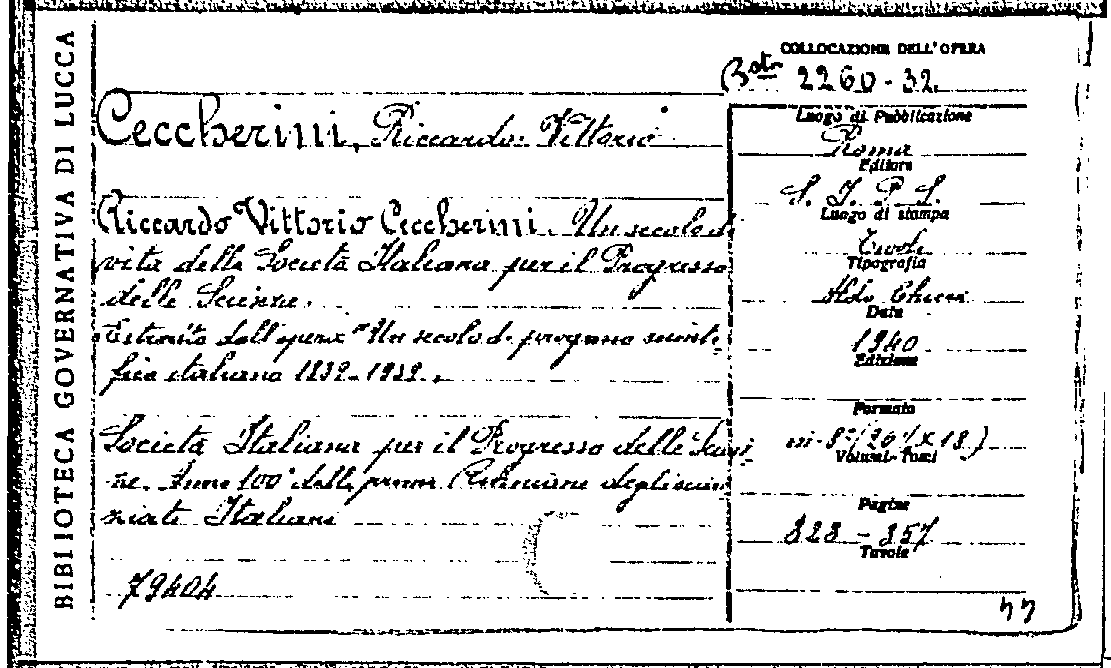 BIBLIOTECA GOVERNATIVA DI LUCCA
COLLOCAZIONE DELL'OPERA
Bta 2260-32.
Ceccherini, Riccardo Vittorio
Riccardo Vittorio Ceccherini. Un secolo di
vita della Società Italiana per il Progresso
delle Scienze.
Estratto dall'opera "Un secolo di progresso scienti-
fico italiano 1839-1939.
Società Italiana per il Progresso delle Scien
ze. Anno 100° dalla prima Riunione degli scien
ziati Italiani
79404
Luogo di Pubblicazione
Roma
Editore
S. I. P. S.
Luogo di stampa
Tivoli
Tipografia
Aldo Chicca
Data
1940
Edizione
Formato
in-8°(26½x18)
Volumi-Tomi
Pagine
828-857
Tavole
44